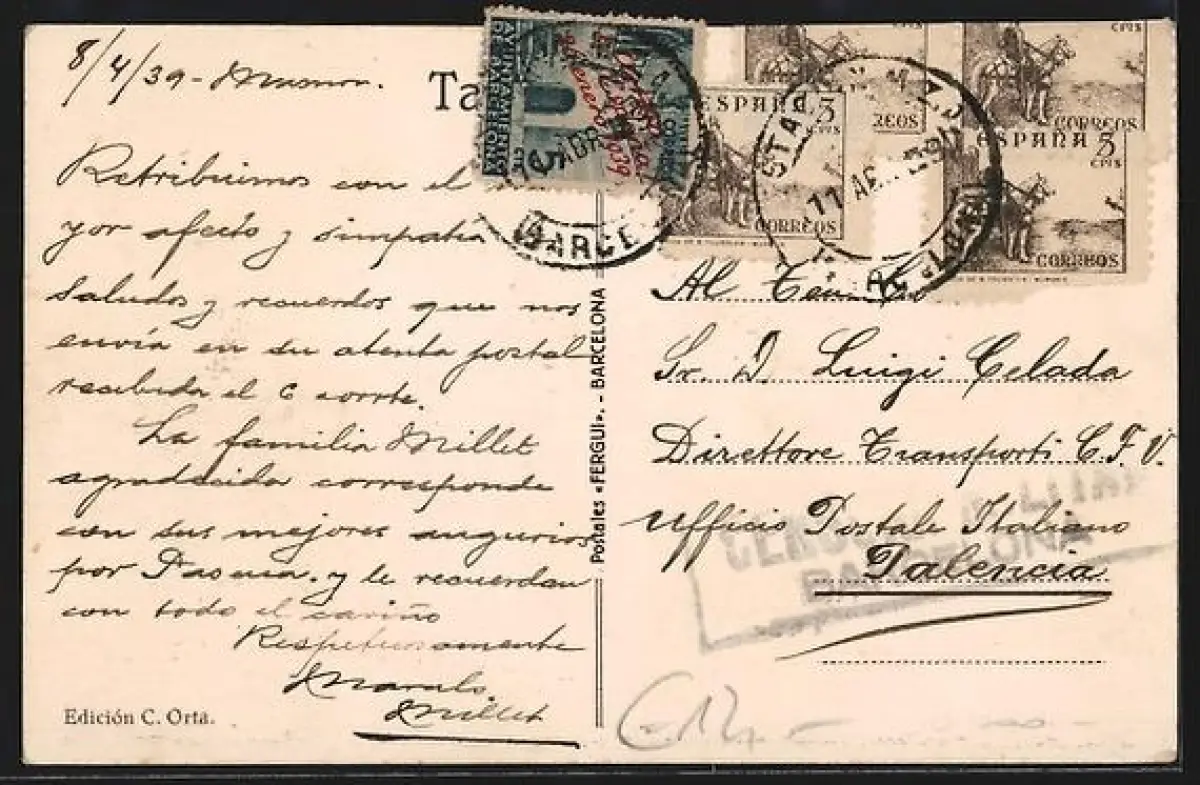 8/4/39
Ta
AYUNTAMIENTO
DE BARCELONA
CTS
ABR
BARCE
ESPAÑA 5
CORREOS
REOS
11 39
CTS
CORREOS
ESPAÑA 5
CTS
CORREOS
Retribuimos con el
yor afecto y simpatía
saludos y recuerdos que nos
envía en su atenta postal
recibida el 6 corrte.
La familia Millet
agradecida corresponde
con sus mejores augurios
por Pascua. y le recuerdan
con todo el cariño
Respetuosamente
Millet
Edición C. Orta.
Postales «FERGUI». - BARCELONA
Al
Sr. D. Luigi Celada
Direttore Transporti C.T.V.
Ufficio Postale Italiano
Palencia
CENSURA MILITAR
BARCELONA